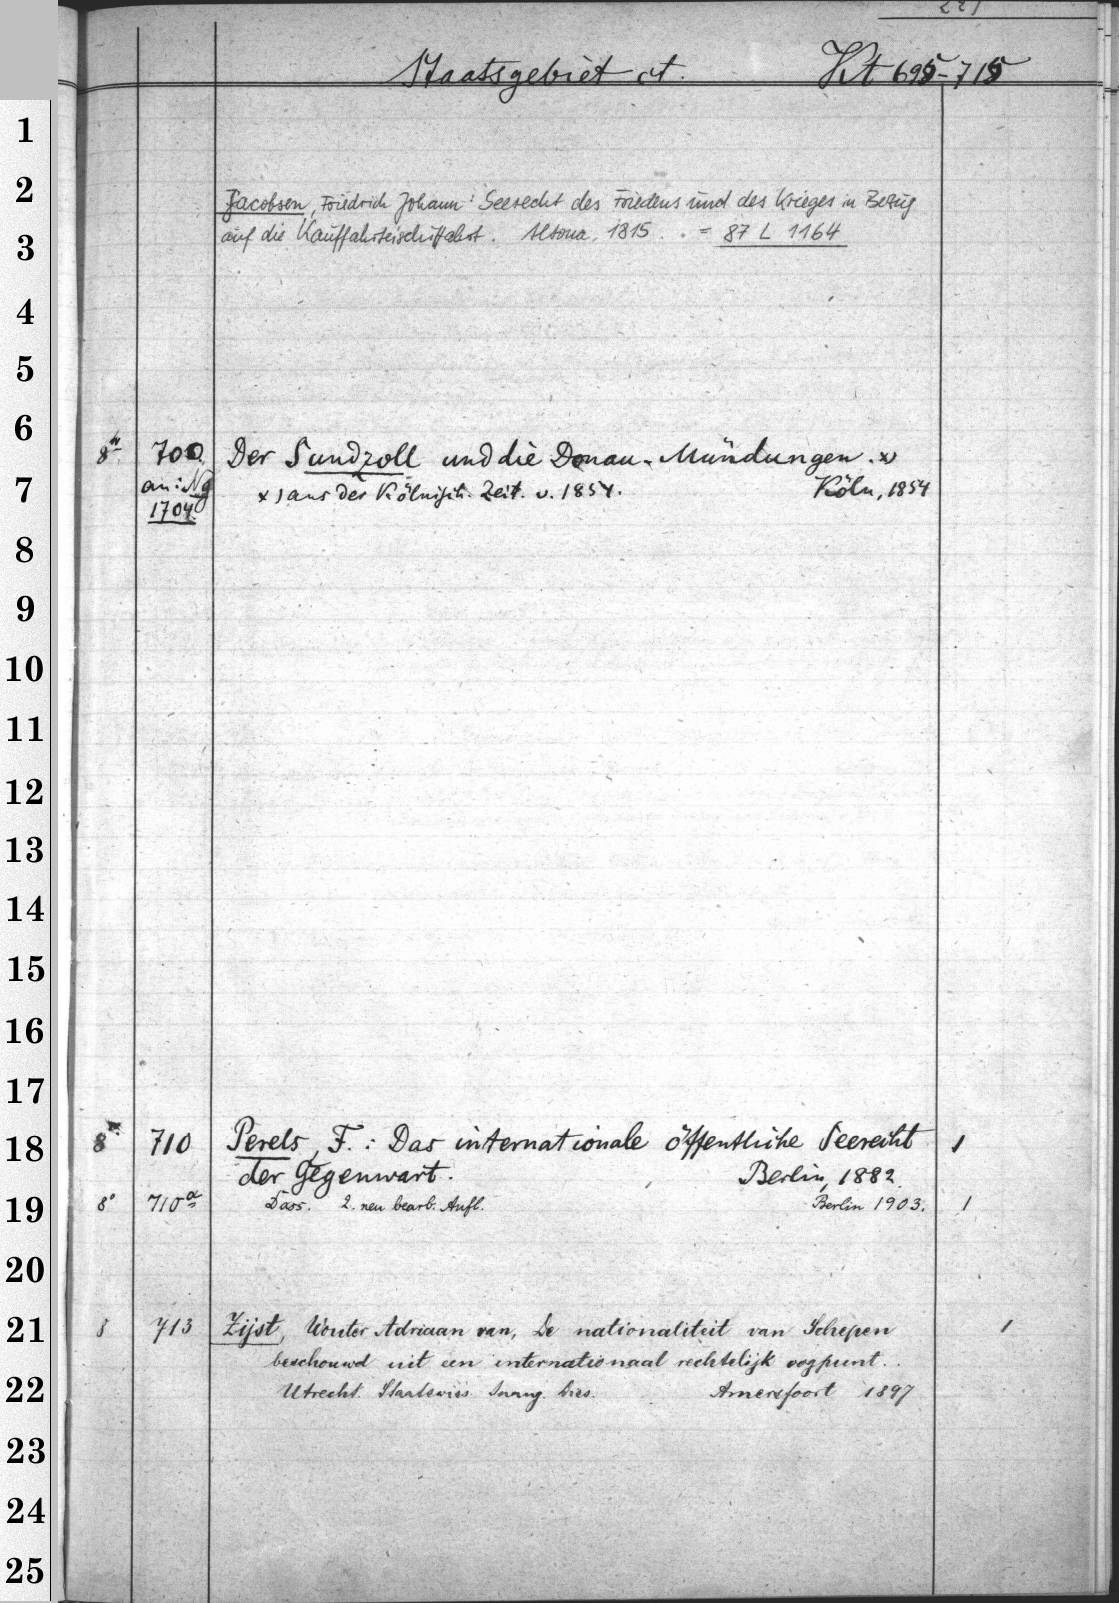 221
Staatsgebiet ct. Kt 695-715
1
2
Jacobsen, Friedrich Johann: Seerecht des Friedens und des Krieges in Bezug
3
auf die Kauffahrteischiffahrt. Altona, 1815. = 87 L 1164
4
5
6
8° 700. Der Sundzoll und die Donau-Mündungen. x)
7
an: Ng x) aus der Kölnisch. Zeit. v. 1854. Köln, 1854
1704
8
9
10
11
12
13
14
15
16
17
18
8° 710 Perels, F.: Das internationale öffentliche Seerecht 1
der Gegenwart. Berlin, 1882.
19
8° 710a Dass. 2. neu bearb. Aufl. Berlin 1903. 1
20
21
8 713 Zijst, Wouter Adriaan van, De nationaliteit van Schepen 1
beschouwd uit een internationaal rechtelijk oogpunt.
22
Utrecht. Staatswiss. Inaug. Diss. Amersfoort 1897
23
24
25